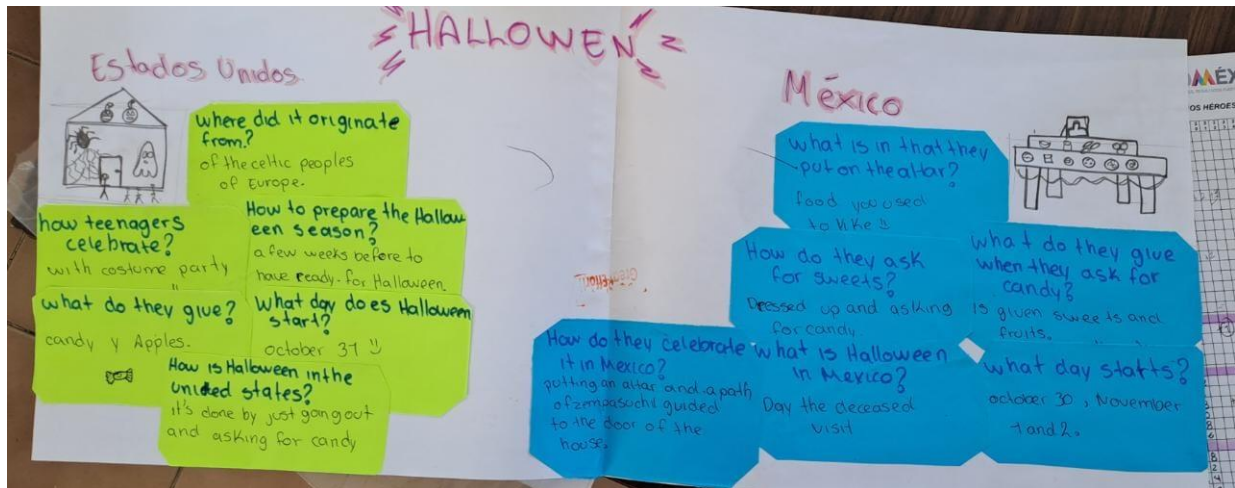 HALLOWEN
Estados Unidos
where did it originate
from?
of the celtic peoples
of Europe.
how teenagers
celebrate?
with costume party
How to prepare the Hallow
een season?
a few weeks before to
have ready for Halloween.
what do they give?
candy y Apples.
What day does Halloween
start?
october 31
How is Halloween in the
united states?
it's done by just going out
and asking for candy
México
what is in that they
put on the altar?
food you used
to like
How do they ask
for sweets?
Dressed up and asking
for candy.
what do they give
when they ask for
candy?
Is given sweets and
fruits.
How do they celebrate
it in Mexico?
putting an altar and a path
of zempasuchil guided
to the door of the
house.
what is Halloween
in Mexico?
Day the deceased
visit
what day statts?
october 30, November
1 and 2.
OS HÉROES